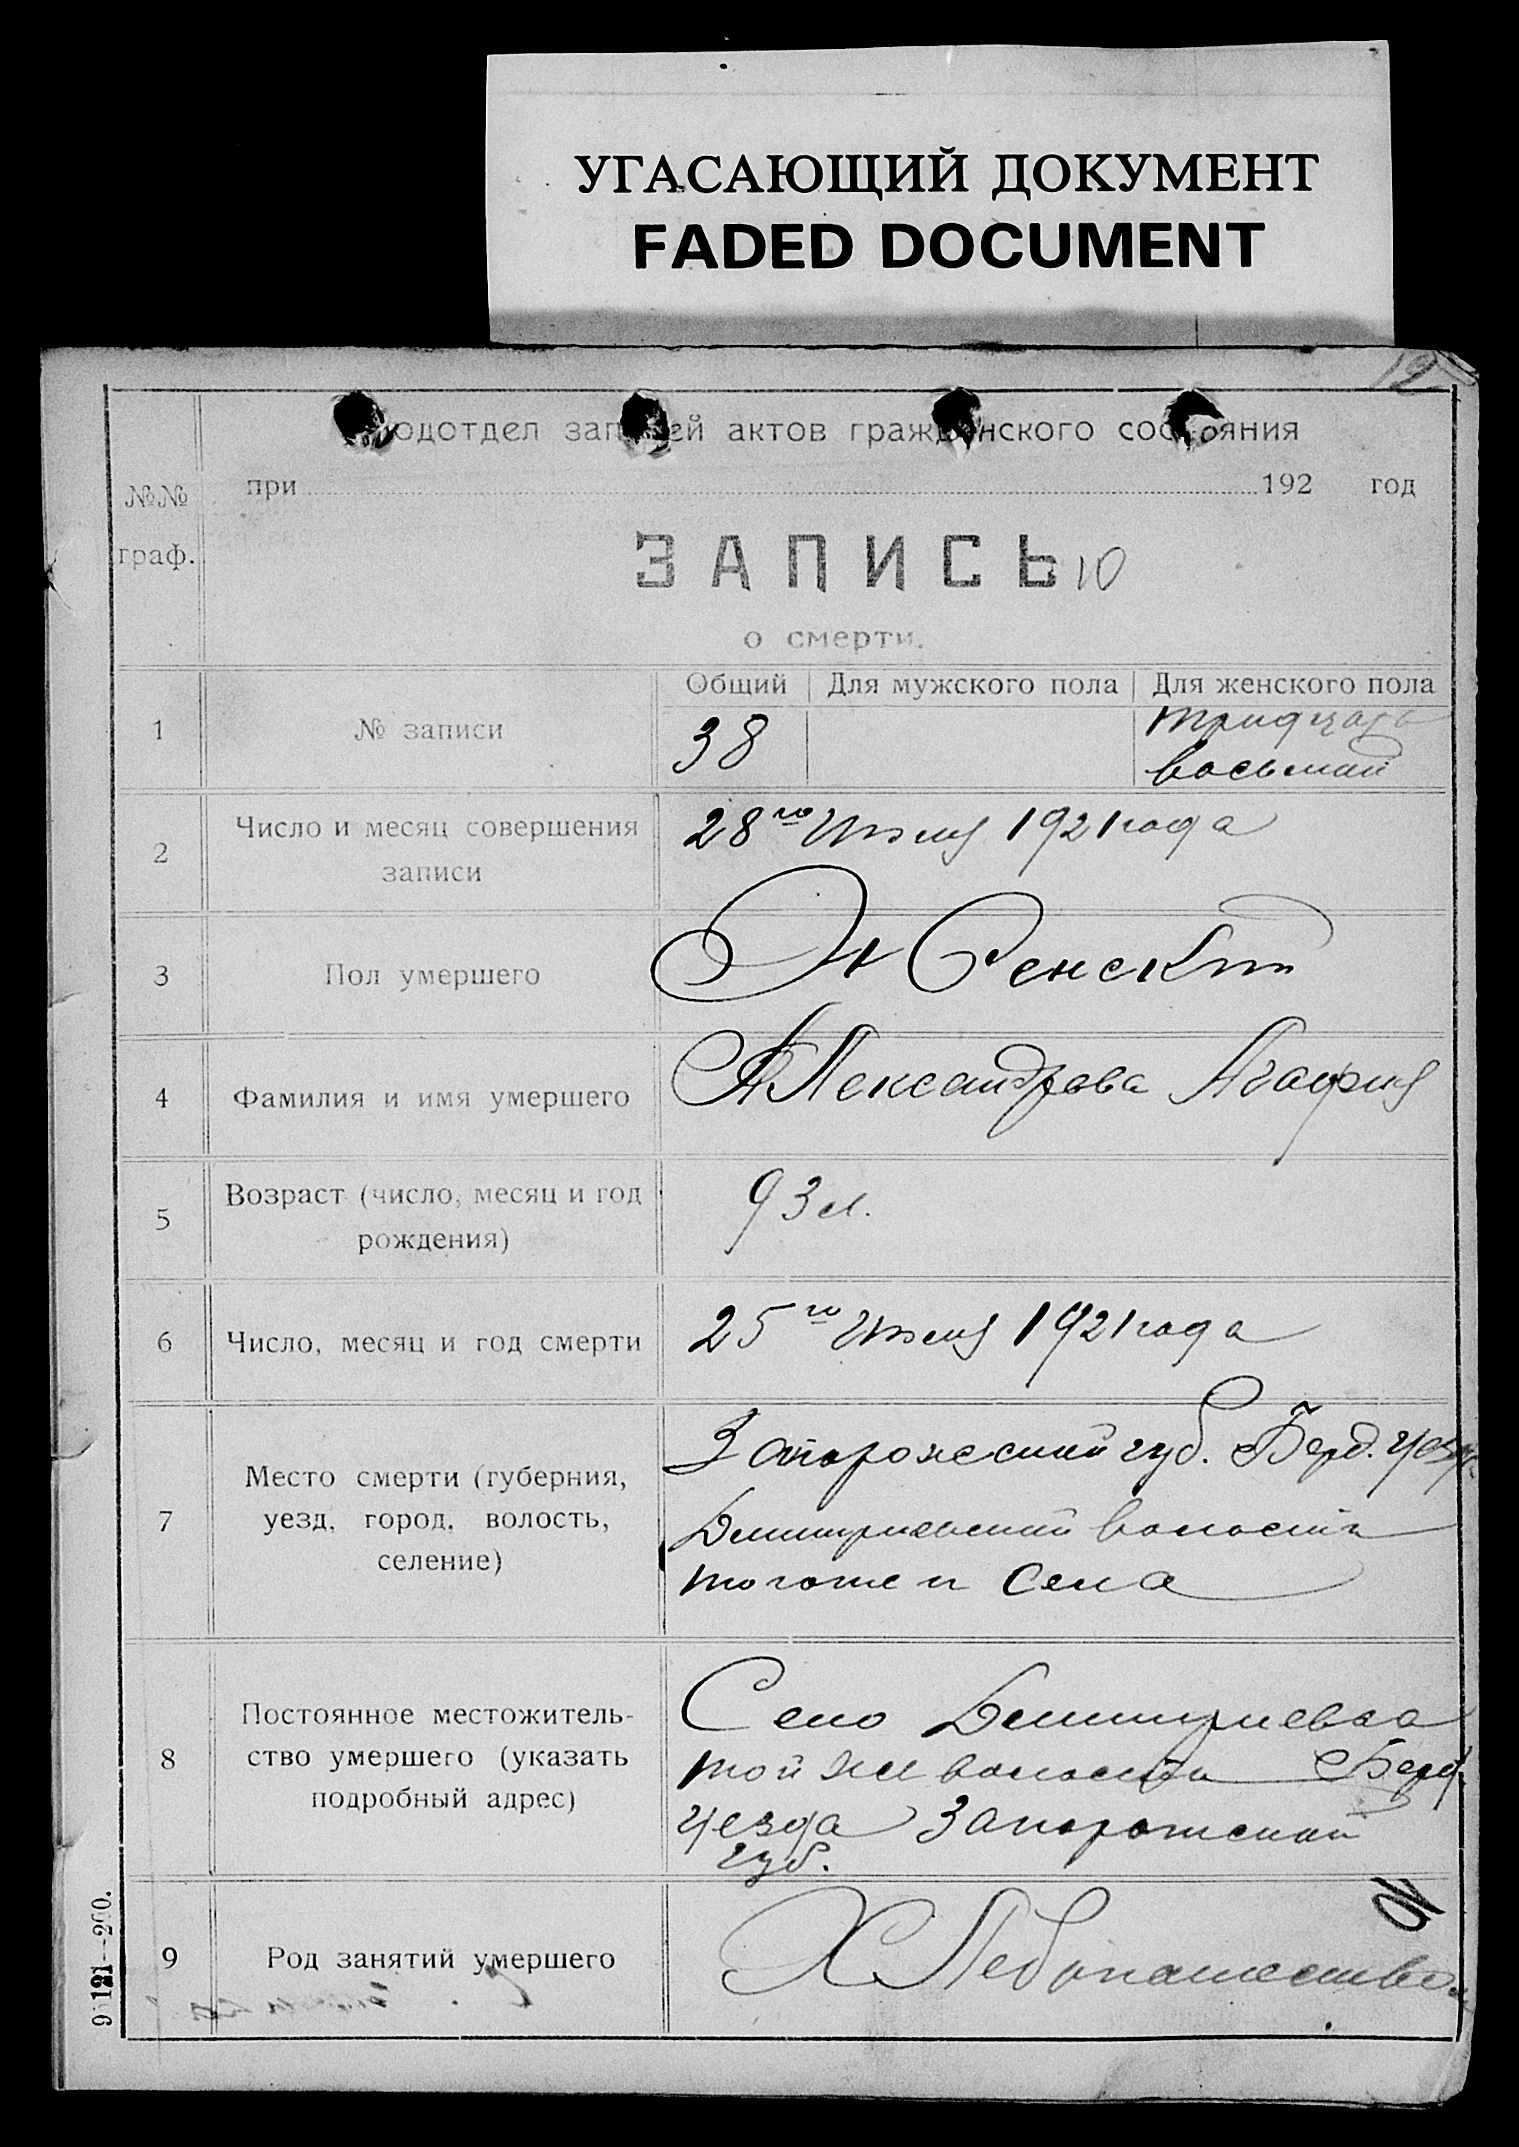 УГАСАЮЩИЙ ДОКУМЕНТ
FADED DOCUMENT
12
Подотдел записей актов гражданского состояния
№№ граф.
при 192 год
ЗАПИСЬ 10
о смерти.
1 № записи
Общий Для мужского пола Для женского пола
38 тридцать
восьмой
2 Число и месяц совершения
записи
28го Июля 1921 года
3 Пол умершего
Женский
4 Фамилия и имя умершего
Александрова Агафия
5 Возраст (число, месяц и год
рождения)
93 л.
6 Число, месяц и год смерти
25го Июля 1921 года
7 Место смерти (губерния,
уезд, город, волость,
селение)
Запорожской губ. Берд. уезда
Дмитриевской волости
того же и села
8 Постоянное местожитель-
ство умершего (указать
подробный адрес)
Село Дмитриевка
той же волости Берд.
уезда Запорожской
губ.
9 Род занятий умершего
Хлебопашество
10